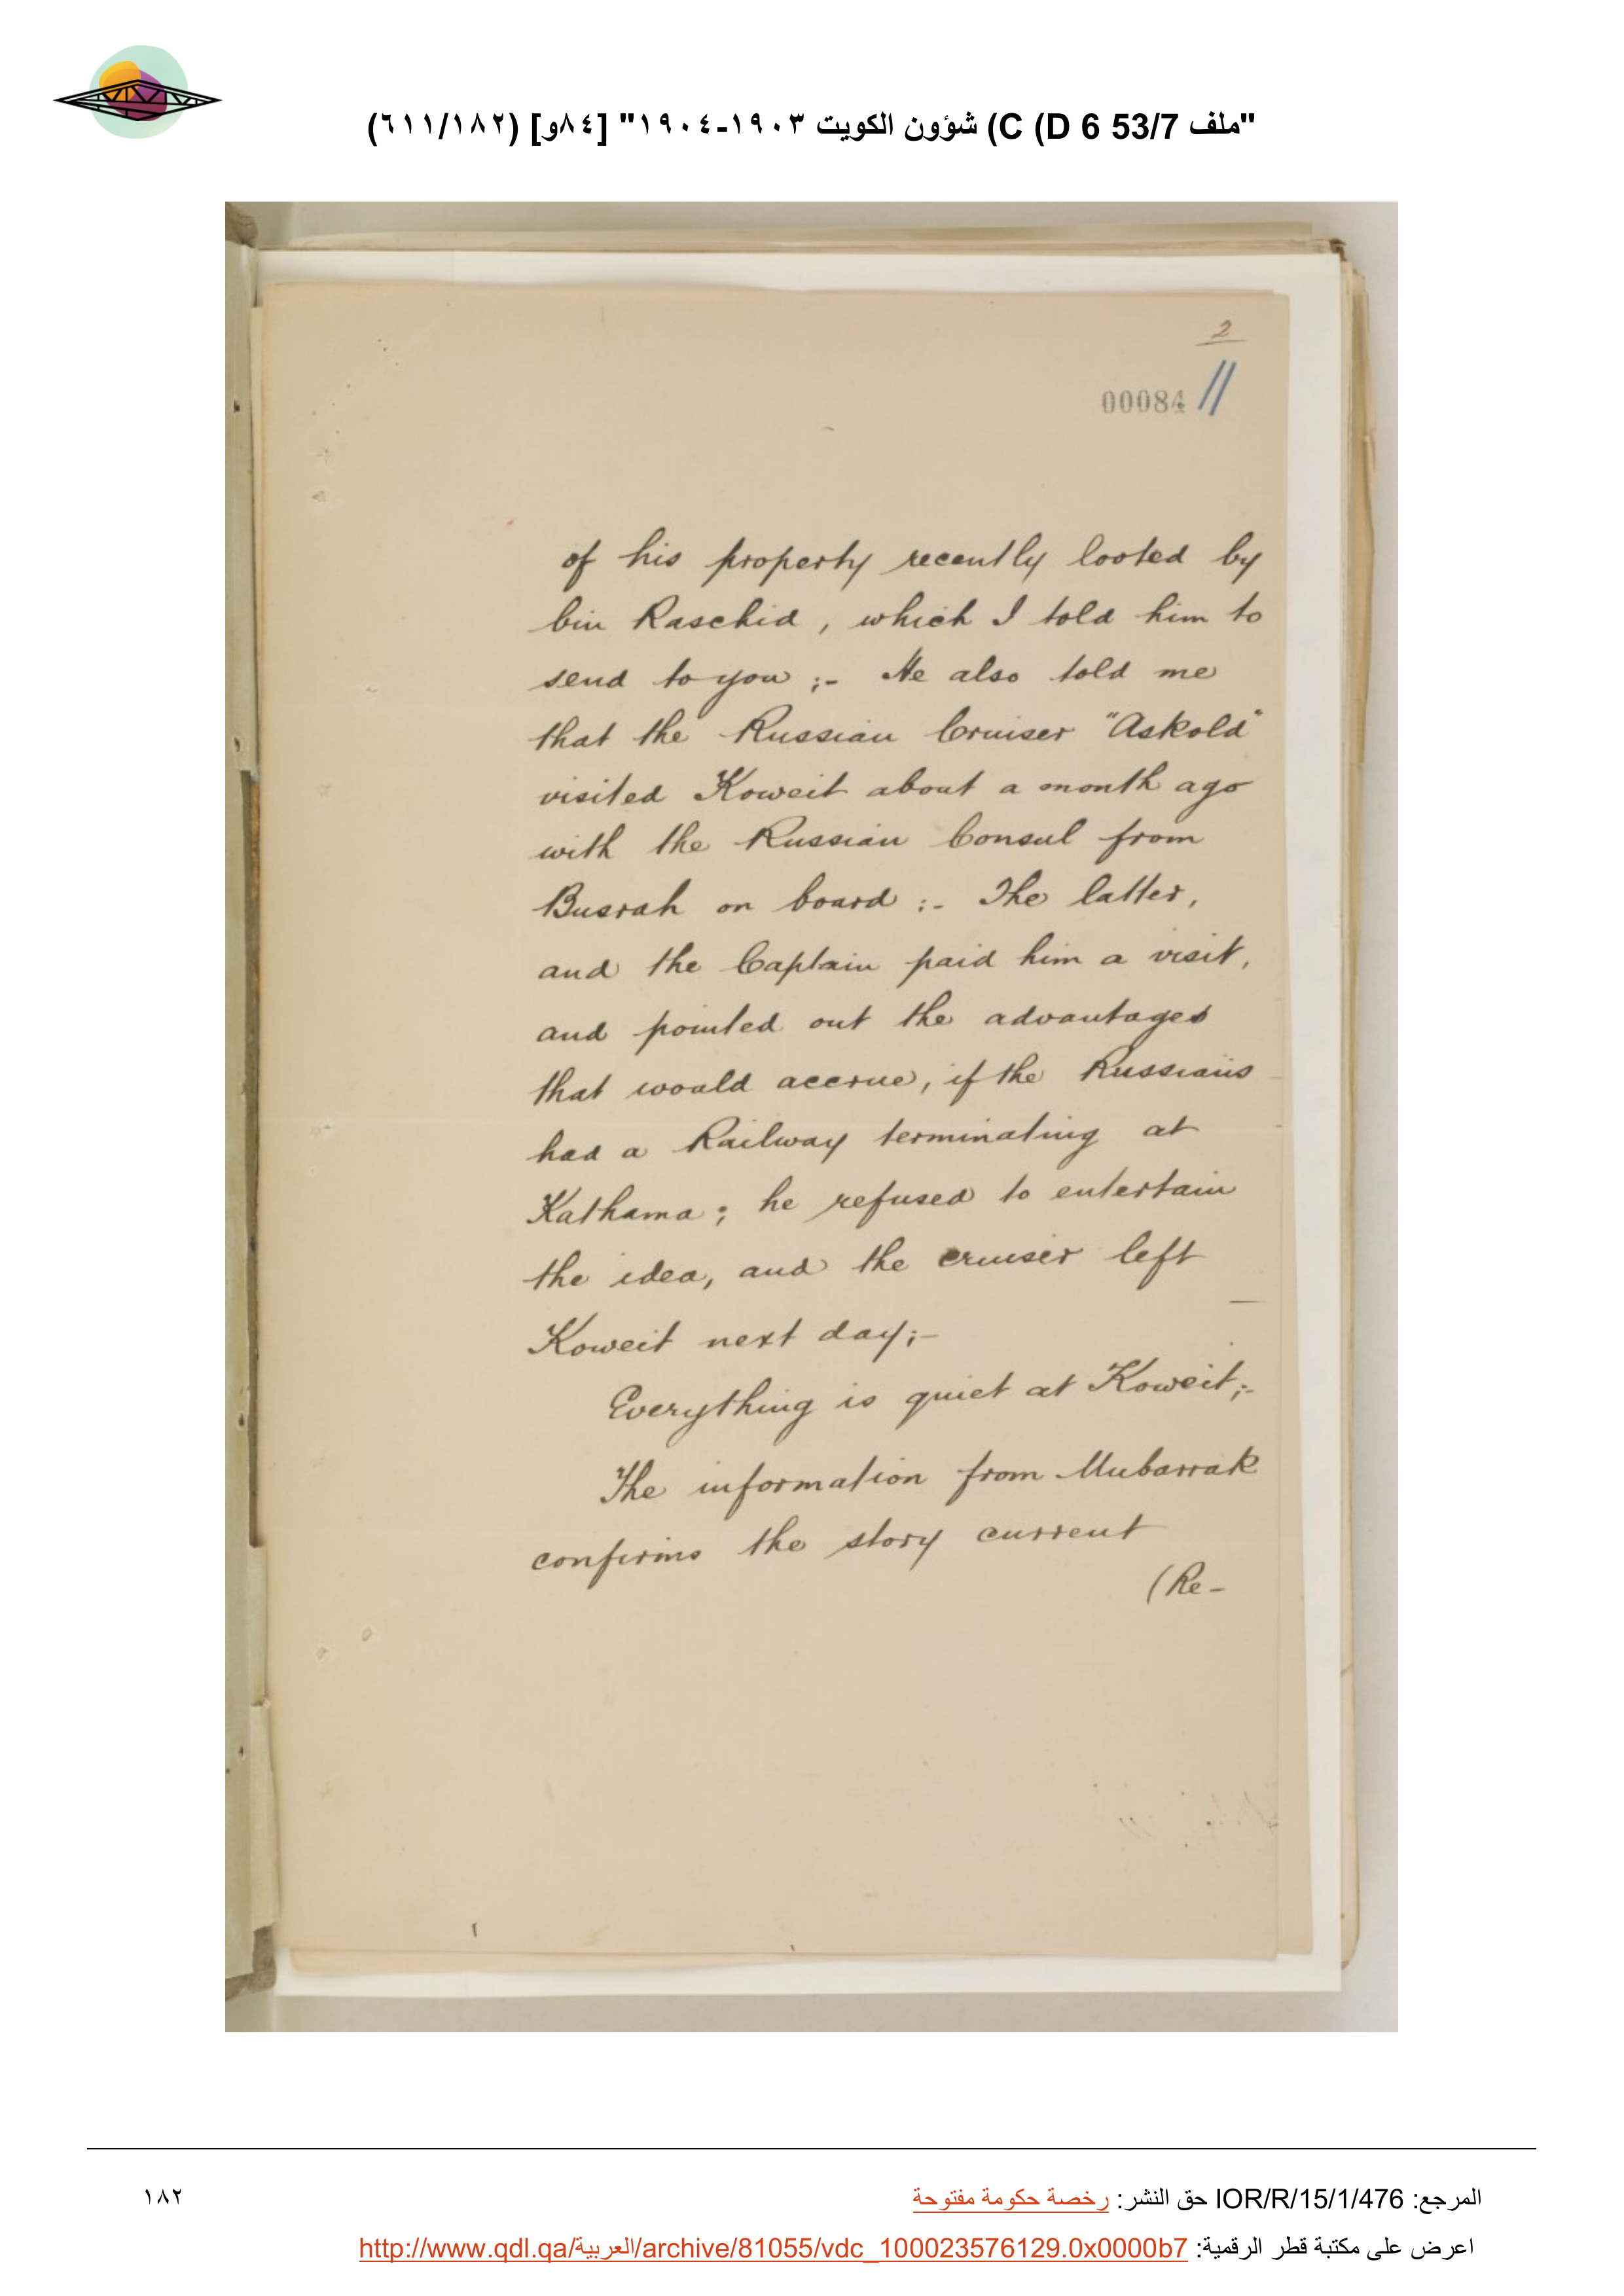 "ملف 53/7 D 6) C) شؤون الكويت ١٩٠٣-١٩٠٤" [٨٤و] (٦١١/١٨٢)
2
00084 11
of his property recently looted by
bin Raschid, which I told him to
send to you ;- He also told me
that the Russian Cruiser "Askold"
visited Koweit about a month ago
with the Russian Consul from
Busrah on board :- The latter,
and the Captain paid him a visit,
and pointed out the advantages
that would accrue, if the Russians
had a Railway terminating at
Kathama; he refused to entertain
the idea, and the cruiser left
Koweit next day;-
Everything is quiet at Koweit;-
The information from Mubarrak
confirms the story current
(Re-
المرجع: IOR/R/15/1/476 حق النشر: رخصة حكومة مفتوحة
١٨٢
اعرض على مكتبة قطر الرقمية: http://www.qdl.qa/العربية/archive/81055/vdc_100023576129.0x0000b7